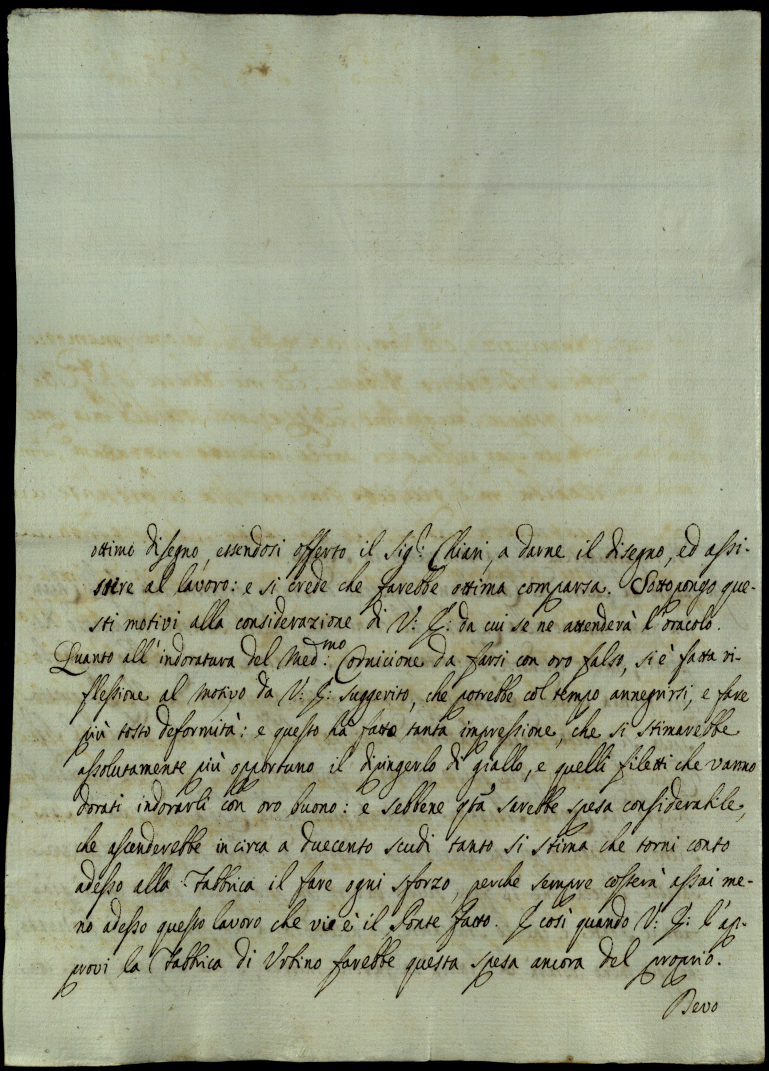 ottimo disegno, essendosi offerto il Sig.r Chiari, a darne il disegno, ed assi-
stere al lavoro: e si crede che farebbe ottima comparsa. Sottopongo que-
sti motivi alla considerazione di V: E: da cui se ne attenderà l'oracolo.
Quanto all'indoratura del Med.mo Cornicione da farsi con oro falso, si è fatta ri-
flessione al motivo da V: E: suggerito, che potrebbe col tempo annegrirsi, e fare
più tosto deformità: e questo hà fatto tanta impressione, che si stimarebbe
assolutamente più opportuno il dipingerlo di giallo, e quelli filetti che vanno
dorati indorarli con oro buono: e sebbene q.ta sarebbe spesa considerabile,
che ascenderebbe in circa a duecento scudi tanto si stima che torni conto
adesso alla Fabbrica il fare ogni sforzo, perche sempre costerà assai me-
no adesso questo lavoro che vi è il Ponte fatto. E così quando V: E: l'ap-
provi la Fabbrica di Urbino farebbe questa spesa ancora del proprio.
Devo